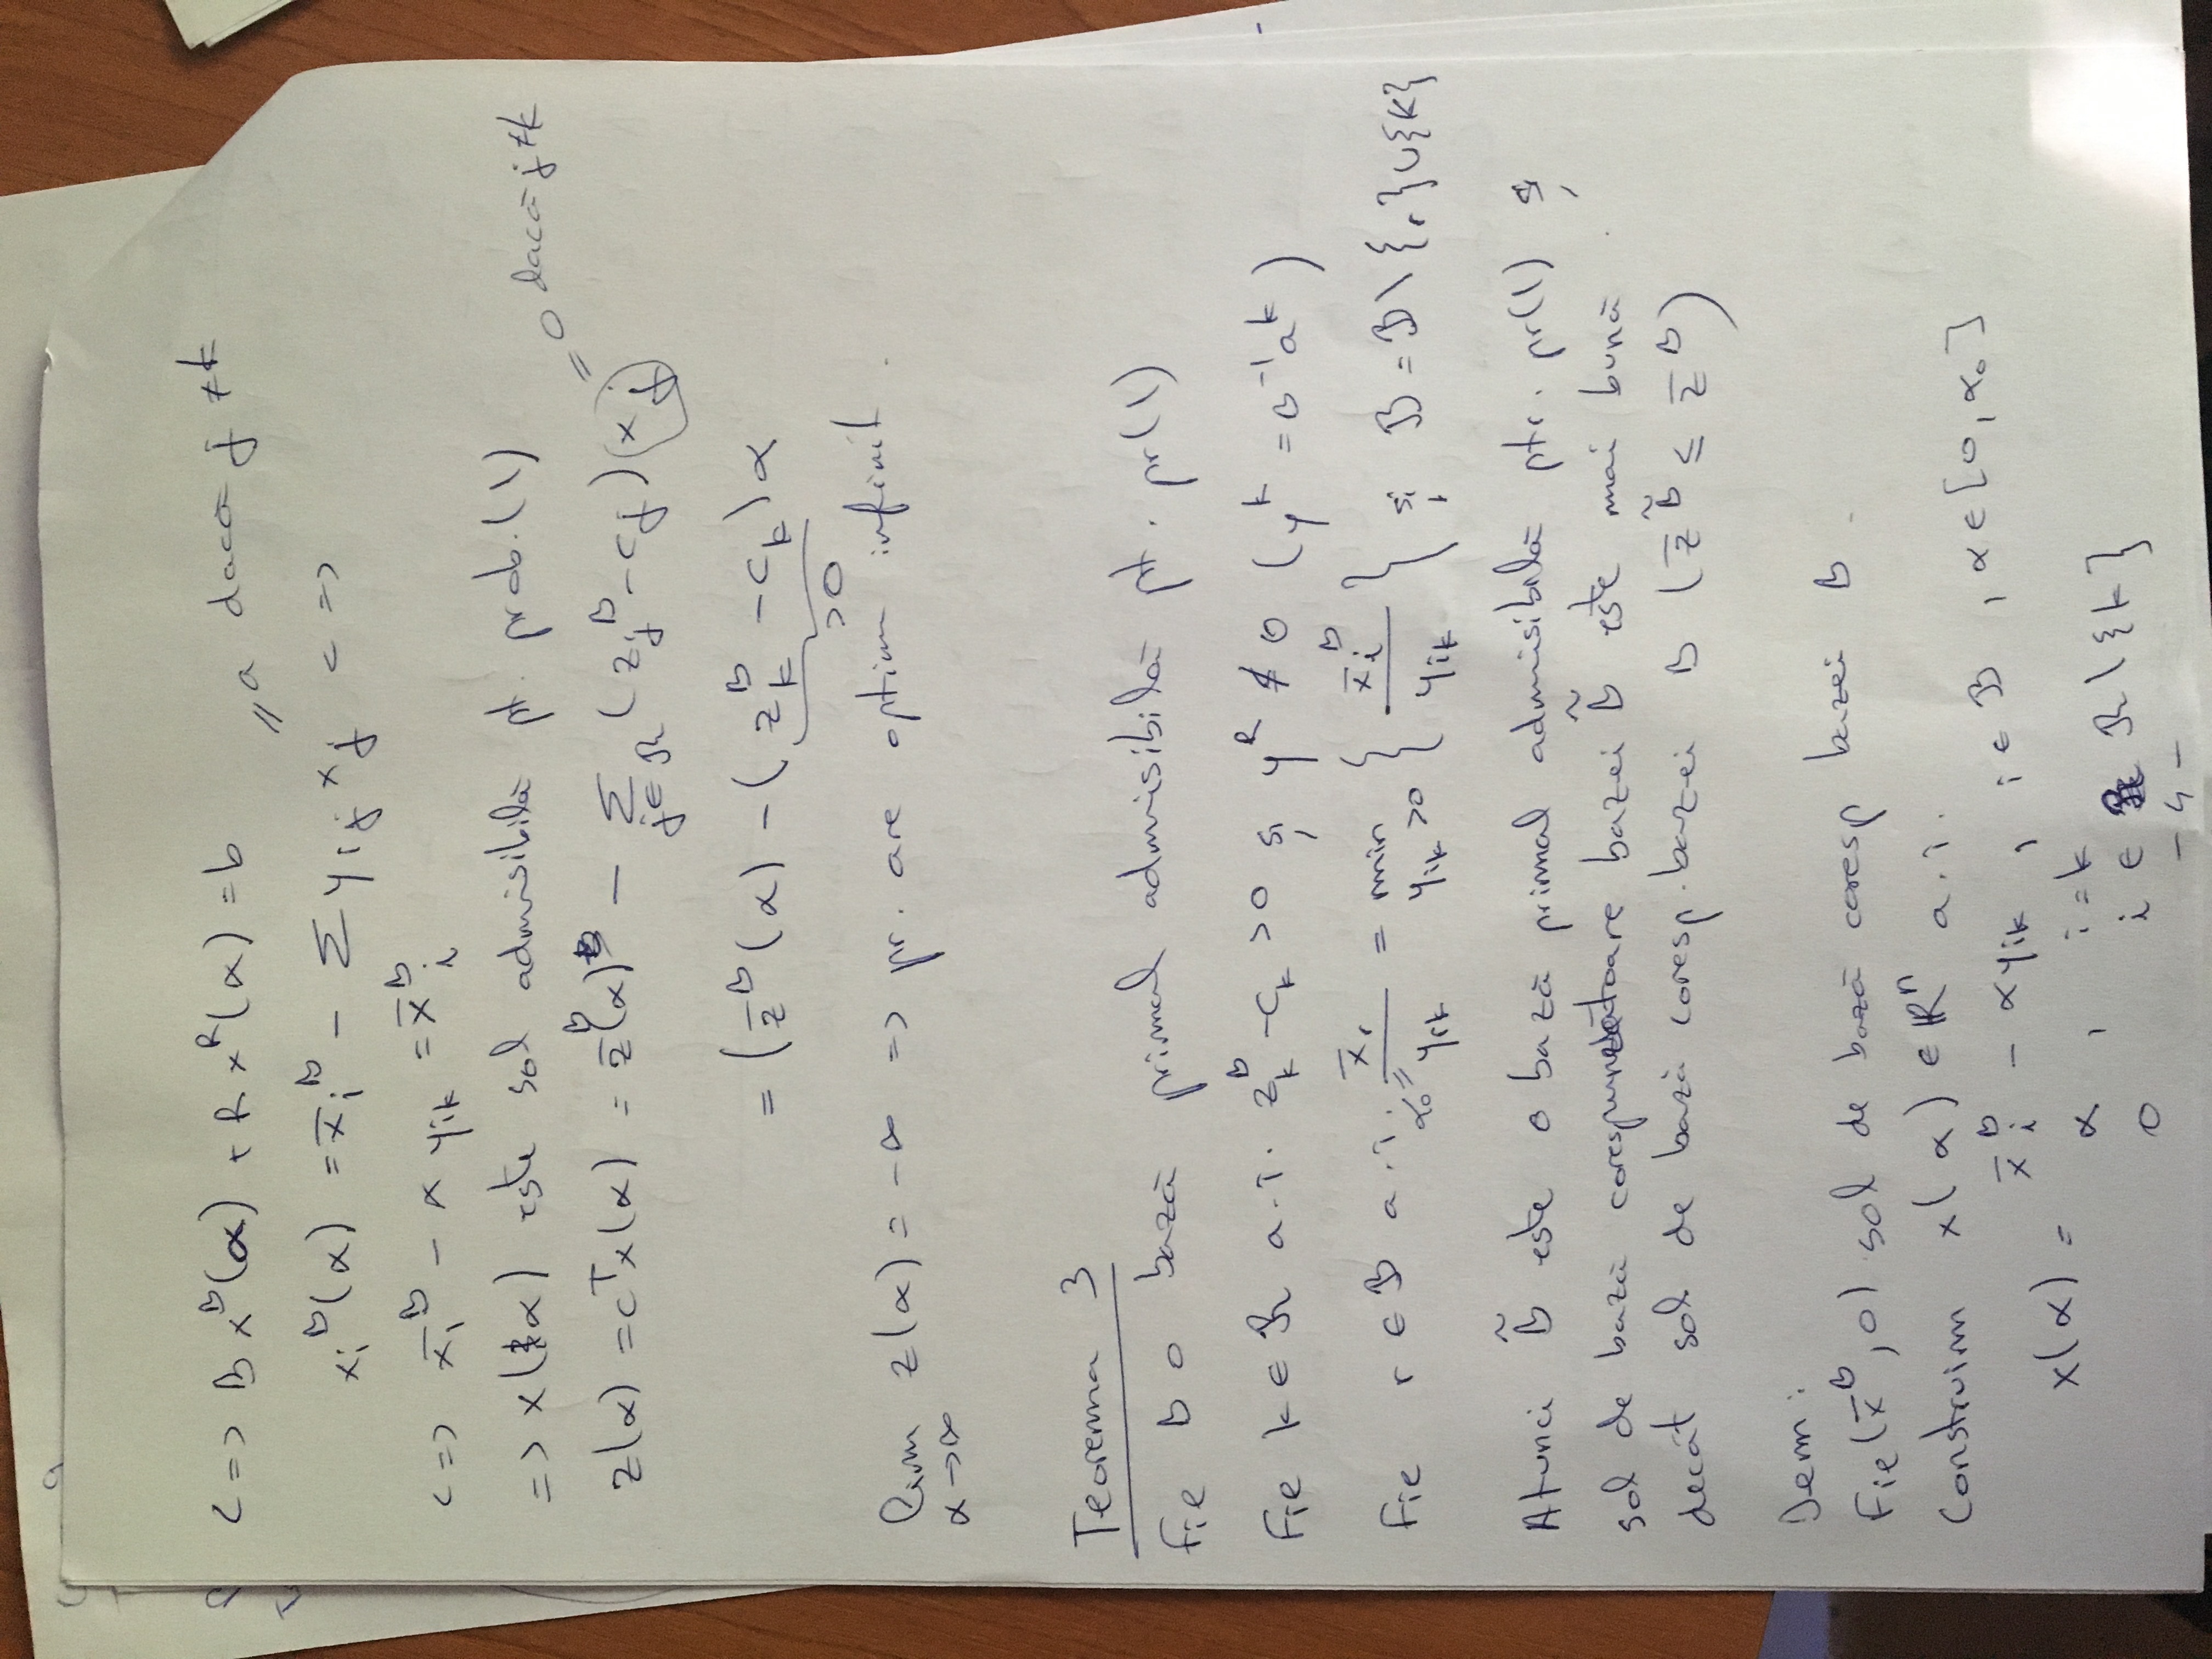 <=> B x^B(α) + R x^R(α) = b
"0 dacă j ≠ k
x_i^B(α) = x̄_i^B - Σ y_ij x_j <=>
<=> x̄_i^B - α y_ik = x̄_i^B
=> x(α) este sol admisibilă pt. prob. (1)
= 0 dacă j ≠ k
z(α) = c^T x(α) = z̄^B(α) - Σ_{j∈R} (z_j^B - c_j) (x_j)
= (z̄^B(α) - (z_k^B - c_k) α
>0
lim_{α→∞} z(α) = -∞ => pr. are optim infinit.
Teorema 3
Fie B o bază primal admisibilă pt. pr(1)
Fie k ∈ R a.î. z_k^B - c_k > 0 și y^k ≰ 0 (y^k = B^-1 a^k)
Fie r ∈ B a.î. α_0 = x̄_r / y_rk = min_{y_ik > 0} { x̄_i^B / y_ik } și B = B \ {r} ∪ {k}
Atunci B̃ este o bază primal admisibilă ptr. pr(1) și
sol de bază corespunzătoare bazei B̃ este mai bună
decât sol de bază coresp. bazei B (z̄^B̃ ≤ z̄^B)
Dem:
Fie (x̄^B, 0) sol de bază coresp bazei B.
Construim x(α) ∈ R^n a.î.
x(α) = x̄_i^B - α y_ik , i ∈ B , α ∈ [0, α_0]
α , i = k
0 i ∈ R \ {k}
- 4 -